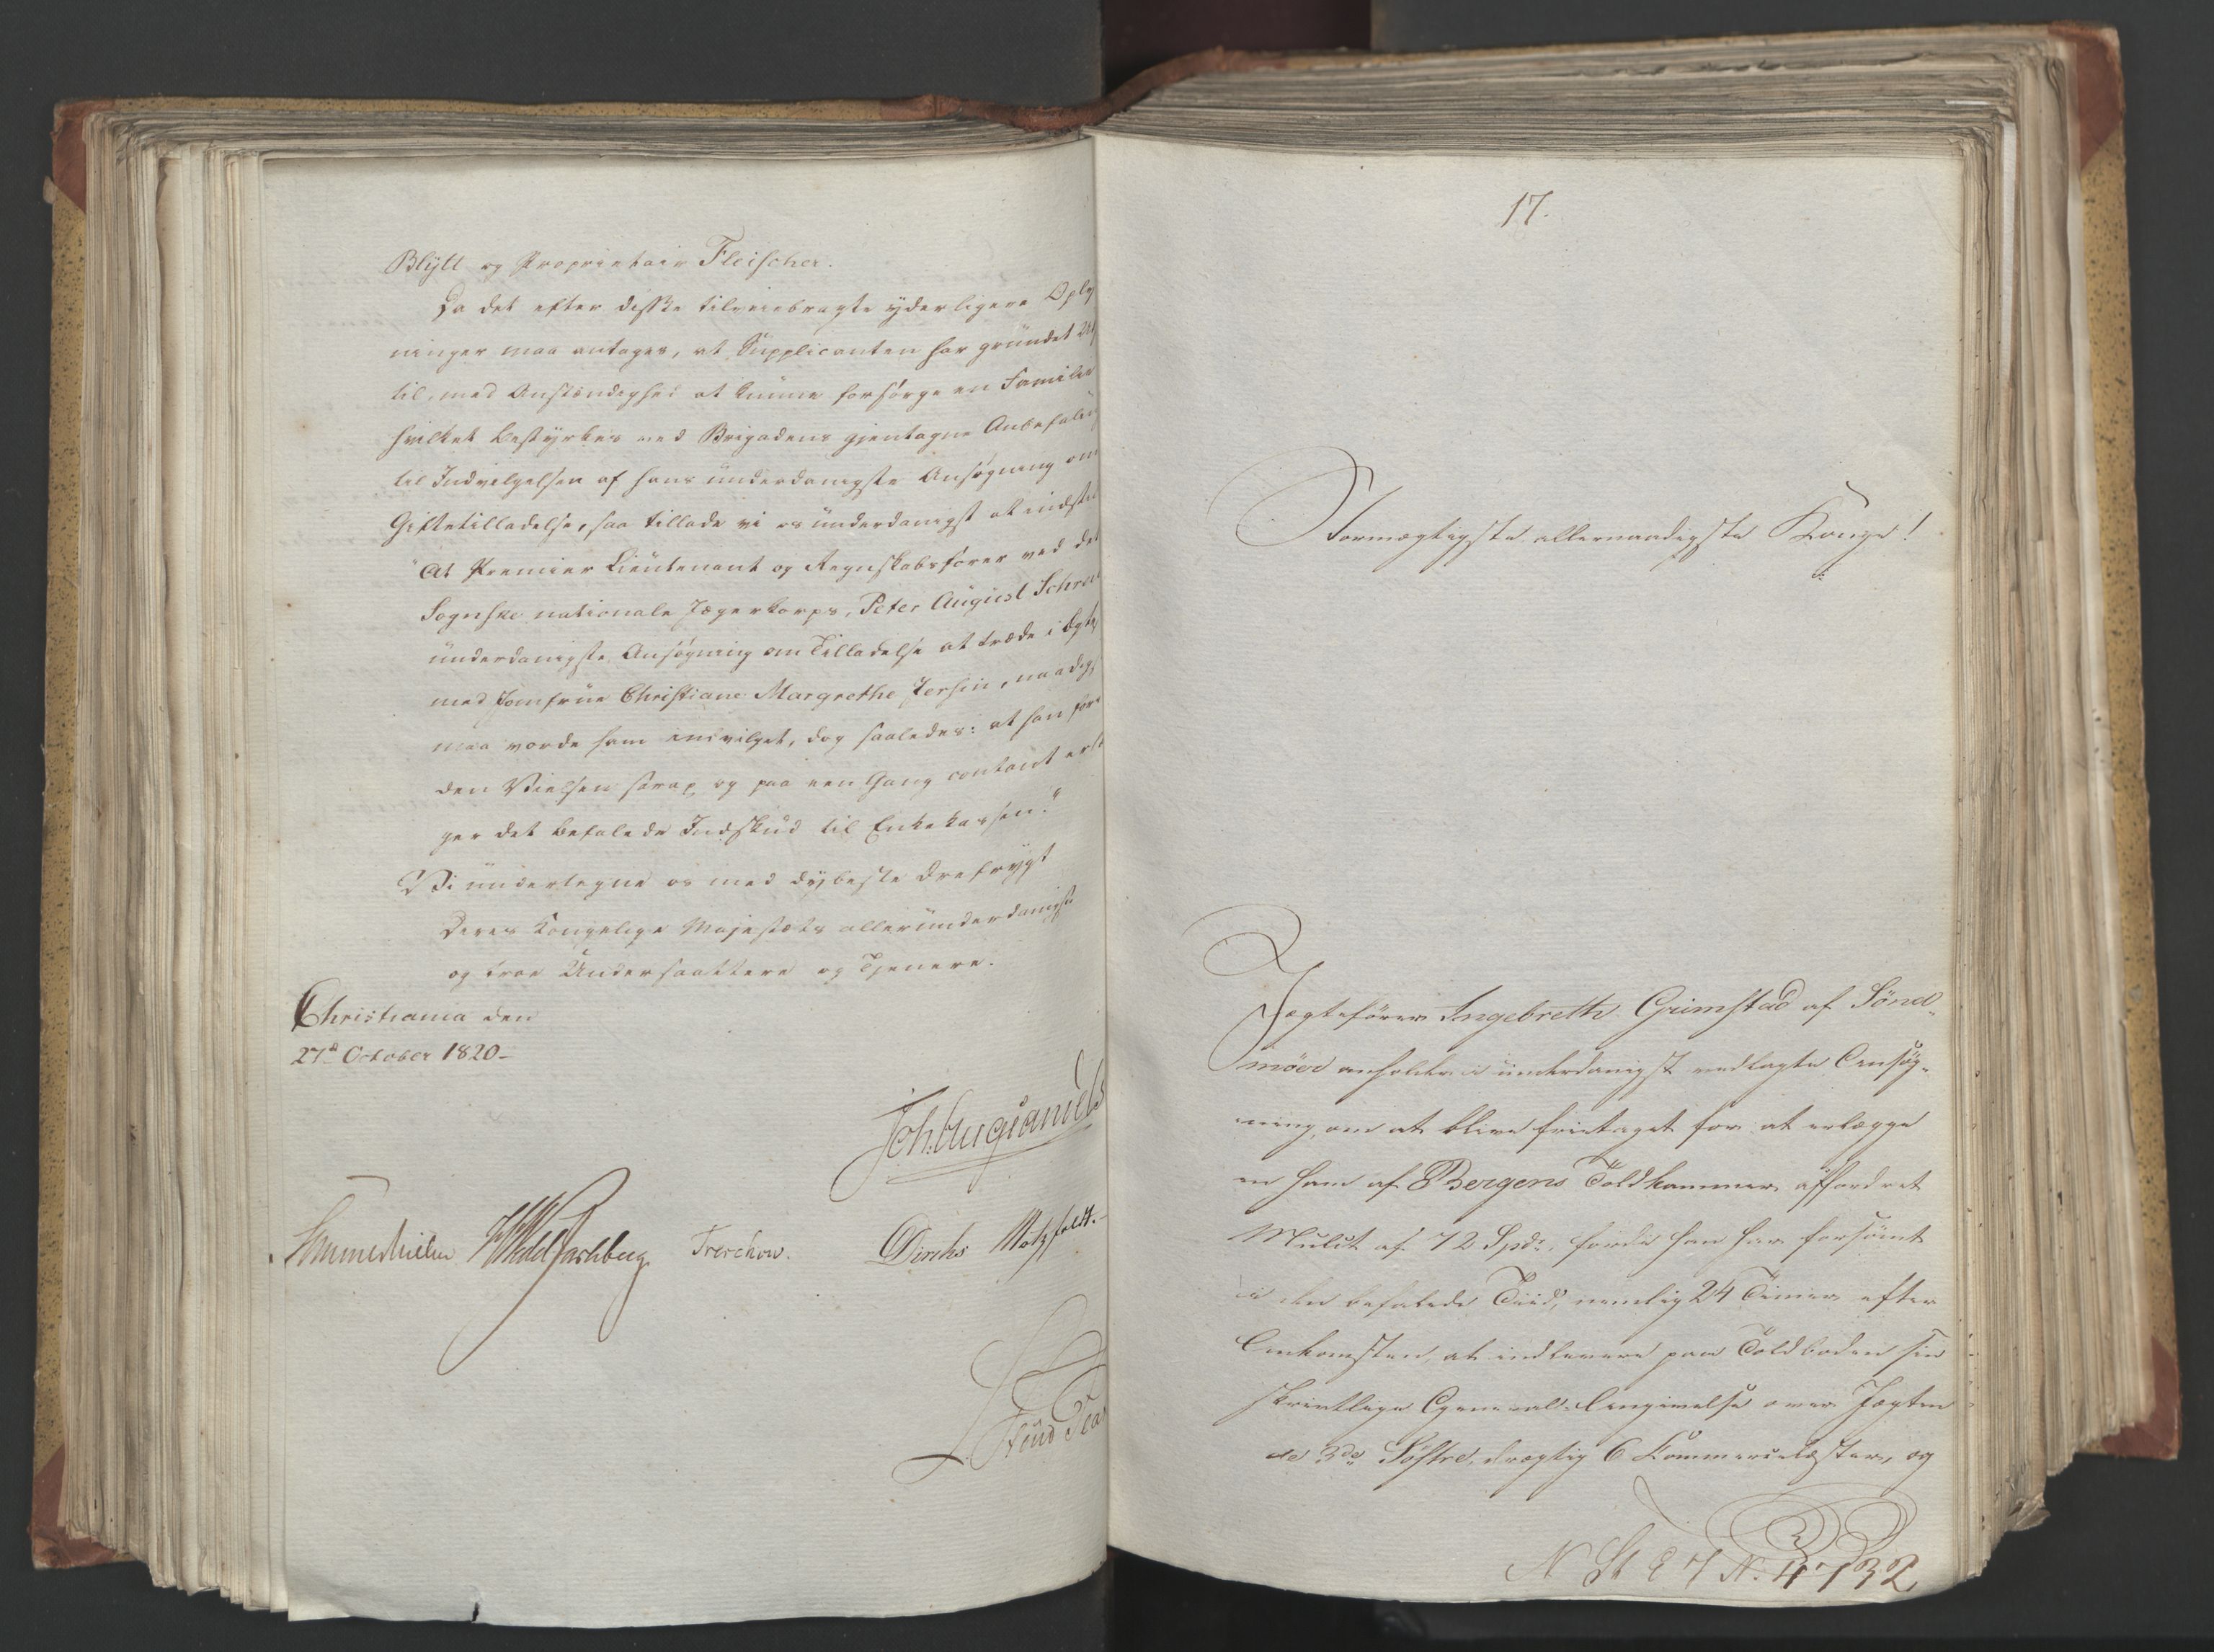 Blÿtt og Proprietair Fleischer.
Da det efter disse tilveiebragte yderligere Oply
ninger maa antages, at Supplicanten har grundet Ud
til, med Anstændighed at kunne forsørge en Familie
hvilket bestyrkes ved Brigadens gjentagne Anbefaling
til Indvilgelsen af hans underdanigste Ansøgning om
Giftetilladelse, saa tillade vi os underdanigst at indstil
"At Premier Lieutenant og Regnskabsfører ved det
Sognske nationale Jægerkorps, Peter August Schr
underdanigste Ansøgning om Tilladelse at træde i Ægte
med Jomfrue Christiane Margrethe Jersin, naadigst
maa vorde ham indvilget, dog saaledes: at han for
den Vielsen strax og paa een Gang contant erlæg
ger det befalede Indskud til Enkekassen."
Vi undertegne os med dybeste Ærefrygt
Deres Kongelige Majestæts allerunderdanigste
og troe Undersaattere og Tjenere.
Christiania den
27d October 1820-
Joh. Aug Sandels
Sommerhielm Wedel Jarlsberg Treschow. Diriks Motzfeldt.
17.
Stormægtigste allernaadigste Konge!
Jægtefører Ingebreth Grimstad af Sönd-
möer anholder i underdanigst vedlagte Ansøg-
ning, om at blive fritaget for at erlægge
en ham af Bergens Toldkammer affordret
Mulct af 72 Spdr, fordi han har forsömt
i den befalede Tiid, nemlig 24 Timer efter
Ankomsten, at indlevere paa Toldboden sin
skrivtlige General-Angivelse over Jægten
de 3de Söstre, drægtig 6 Kommercelæster, og
N St E 7 N. 4732